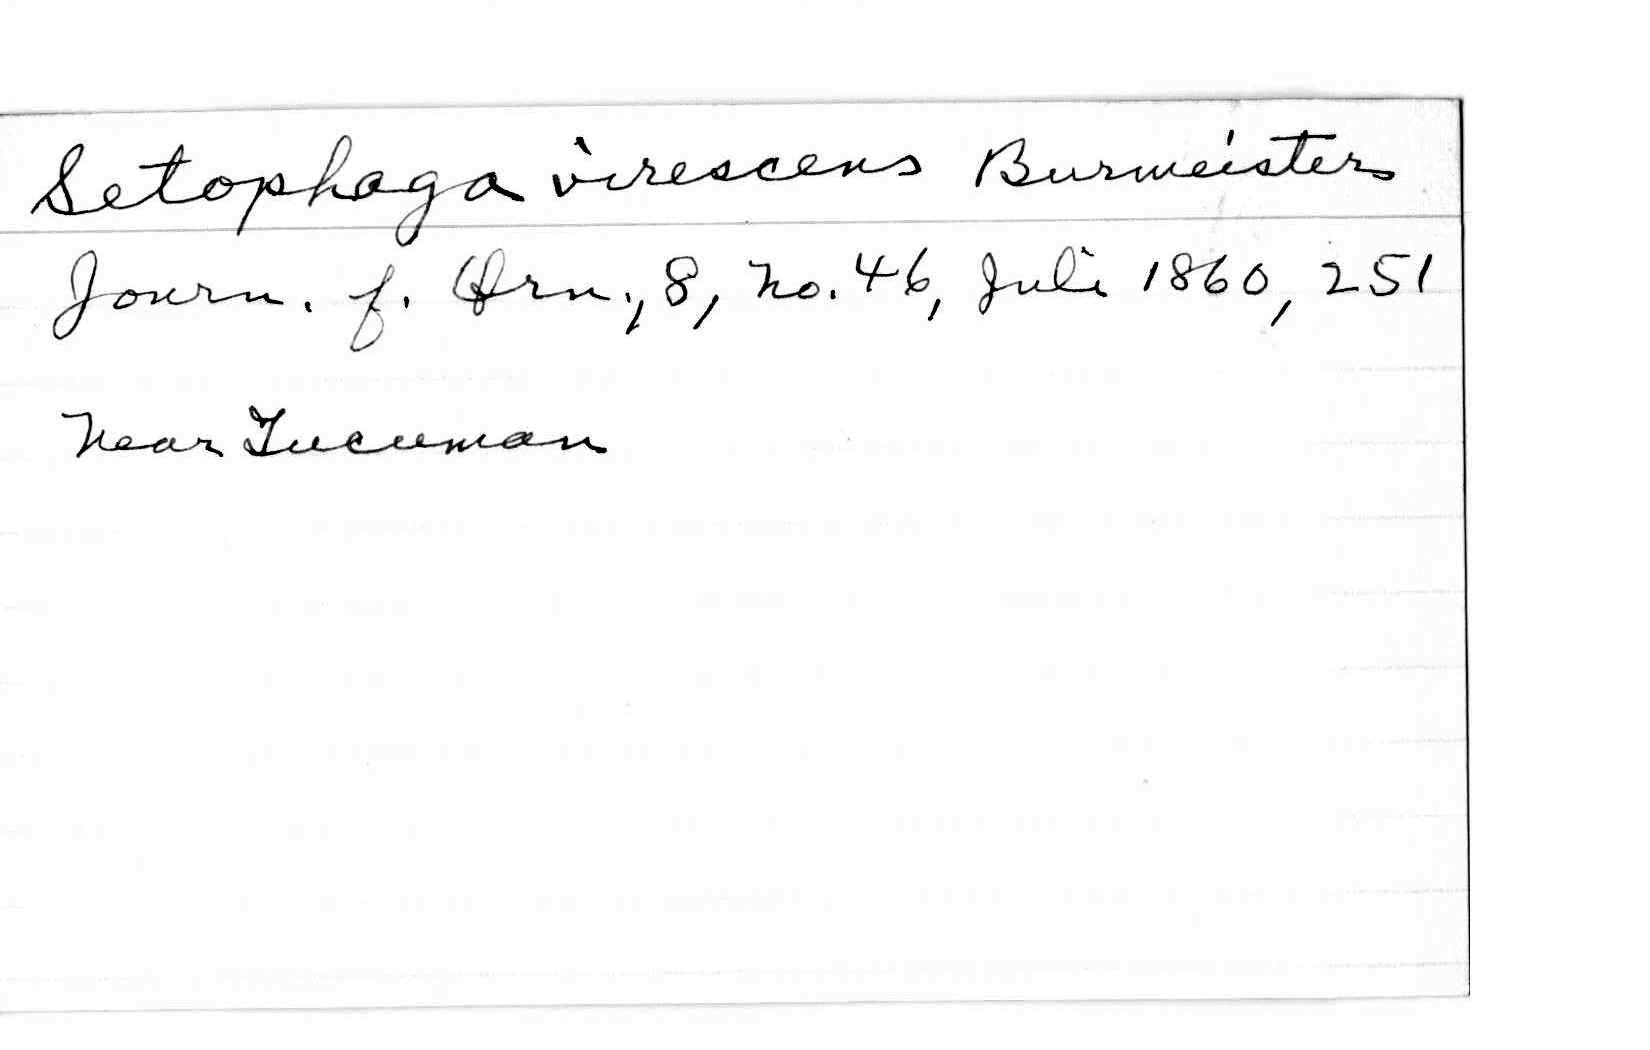 Setophaga virescens Burmeister
Journ. f. Orn., 8, no. 46, Juli 1860, 251
Near Tucuman